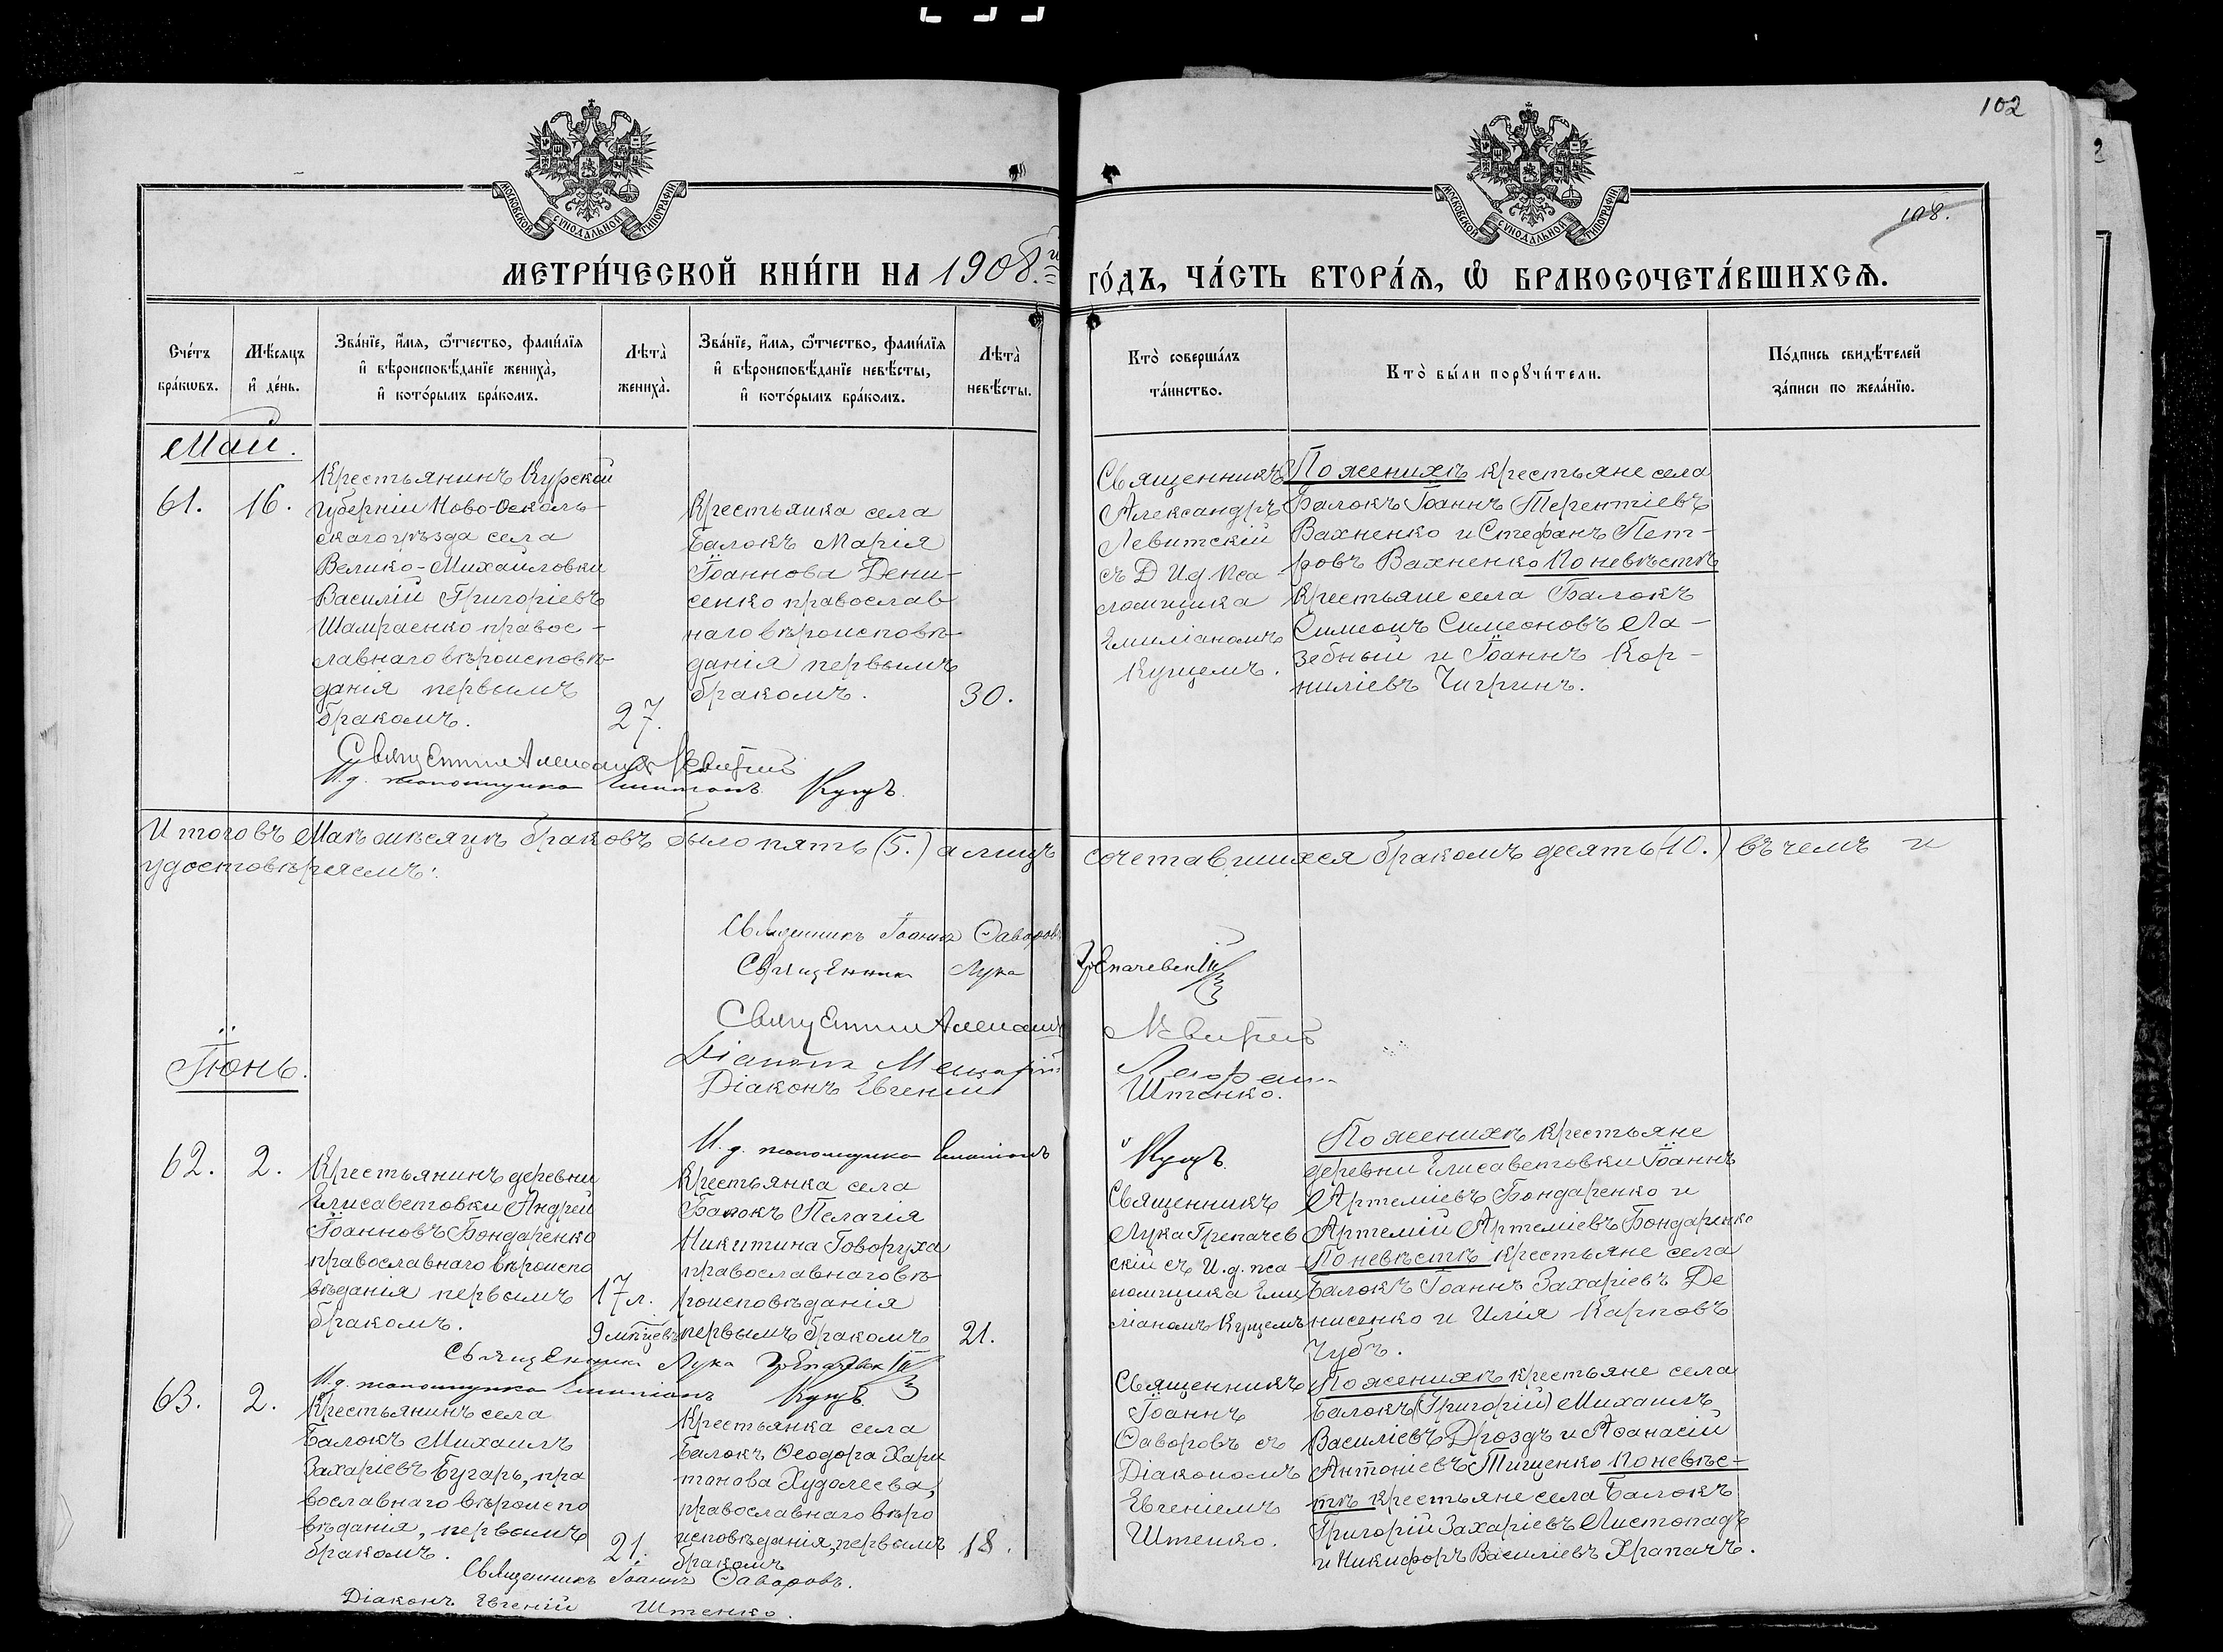 102
108.
МОСКОВСКОЙ СУНОДАЛЬНОЙ ТИПОГРАФІИ
МОСКОВСКОЙ СУНОДАЛЬНОЙ ТИПОГРАФІИ
МЕТРИ́ЧЕСКОЙ КНИ́ГИ НА 1908.й
ГО́ДЪ, ЧА́СТЬ ВТОРА́Ѧ, Ѡ҆ БРАКОСОЧЕТА́ВШИХСѦ.
Сче́тъ бра́кѡвъ.
Мѣ́сяцъ и҆ де́нь.
Зва́нїе, и҆́мѧ, ѻ҆́тчество, фами́лїѧ
и҆ вѣроисповѣ́данїе жениха̀,
и҆ кото́рымъ бра́комъ.
Лѣта̀ жениха̀.
Зва́нїе, и҆́мѧ, ѻ҆́тчество, фами́лїѧ
и҆ вѣроисповѣ́данїе невѣ́сты,
и҆ кото́рымъ бра́комъ.
Лѣта̀ невѣ́сты.
Кто̀ соверша́лъ та́инство.
Кто̀ бы́ли порꙋчи́тели.
По́дпись свидѣ́телей за́писи по жела́нїю.
Май.
61.
16.
Крестьянинъ Курской
губерніи Ново-Осколь-
скаго уѣзда села
Велико-Михайловки
Василій Григоріевъ
Шамраенко правос-
лавнаго вѣроисповѣ-
данія первымъ
бракомъ.
27.
Крестьянка села
Балокъ Марія
Іоаннова Дени-
сенко православ
наго вѣроисповѣ-
данія первымъ
бракомъ.
30.
Священникъ
Александръ
Левитскій
съ Д И д пса-
ломщика
Емиліаномъ
Куцемъ.
По женихѣ крестьяне села
Балокъ Іоаннъ Терентіевъ
Вахненко и Стефанъ Пет-
ровъ Вахненко По невѣстѣ
крестьяне села Балокъ
Симеонъ Симеоновъ Ла-
зебный и Іоаннъ Кор-
ниліевъ Чигринъ.
Священник Александр Левитскій
И.д. псаломщика Емиліанъ Куцъ.
Итого въ Маѣ мѣсяцѣ браковъ было пять (5.) а лицъ сочетавшихся бракомъ десять (10.) въ чемъ и
удостовѣряемъ:
Священникъ Іоаннъ Ѳаворовъ
Священникъ Лука Грепачевскій
Священник Александр Левитскій
Діаконъ
Діаконъ Евгеній Штенко.
И.д. псаломщика Емиліанъ Куцъ.
Іюнь.
62.
2.
Крестьянинъ деревни
Елисаветовки Андрей
Іоанновъ Бондаренко
православнаго вѣроиспо
вѣданія первымъ
бракомъ.
17 л.
9 мѣсцевъ
Крестьянка села
Балокъ Пелагія
Никитина Говоруха
православнаго вѣ-
роисповѣданія
первымъ бракомъ
21.
Священникъ
Лука Грепачев
скій съ И.д. пса-
ломщика Еми
ліаномъ Куцемъ
По женихѣ крестьяне
деревни Елисаветовки Іоаннъ
Артеміевъ Бондаренко и
Артемій Артеміевъ Бондаренко
По невѣстѣ крестьяне села
Балокъ Іоаннъ Захаріевъ Де
нисенко и Илія Карповъ
Чубъ.
Священникъ Лука Грепачевскій
И.д. псаломщика Емиліанъ Куцъ.
63.
2.
Крестьянинъ села
Балокъ Михаилъ
Захаріевъ Бугарь, пра
вославнаго вѣроиспо
вѣданія, первымъ
бракомъ.
21.
Крестьянка села
Балокъ Ѳеодора Хари
тонова Худолеева,
православнаго вѣро
исповѣданія, первымъ
бракомъ
18.
Священникъ
Іоаннъ
Ѳаворовъ съ
Діакономъ
Евгеніемъ
Штенко.
По женихѣ крестьяне села
Балокъ (Григорій) Михаилъ
Василіевъ Дроздъ и Аѳанасій
Антоніевъ Тищенко По невѣс-
тѣ крестьяне села Балокъ
Григорій Захаріевъ Листопадъ
и Никифоръ Василіевъ Храпачъ.
Священникъ Іоаннъ Ѳаворовъ.
Діаконъ Евгеній Штенко.